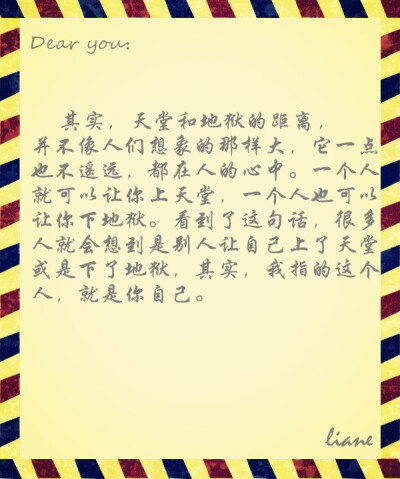 Dear you:
其实，天堂和地狱的距离，
并不像人们想象的那样大，它一点
也不遥远，都在人的心中。一个人
就可以让你上天堂，一个人也可以
让你下地狱。看到了这句话，很多
人就会想到是别人让自己上了天堂
或是下了地狱，其实，我指的这个
人，就是你自己。
liane